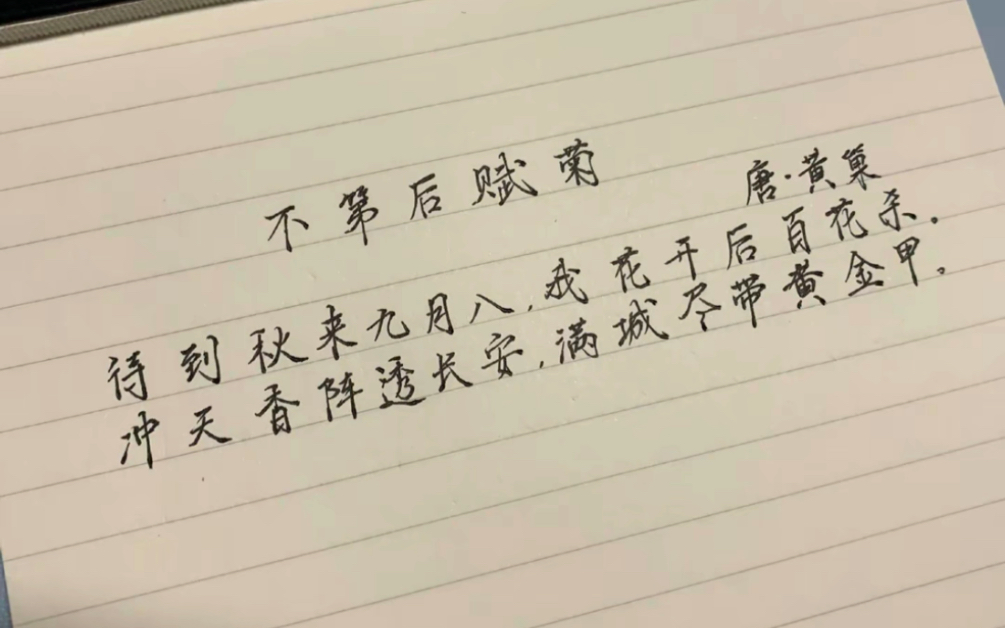 不第后赋菊
唐·黄巢
待到秋来九月八,我花开后百花杀.
冲天香阵透长安,满城尽带黄金甲。